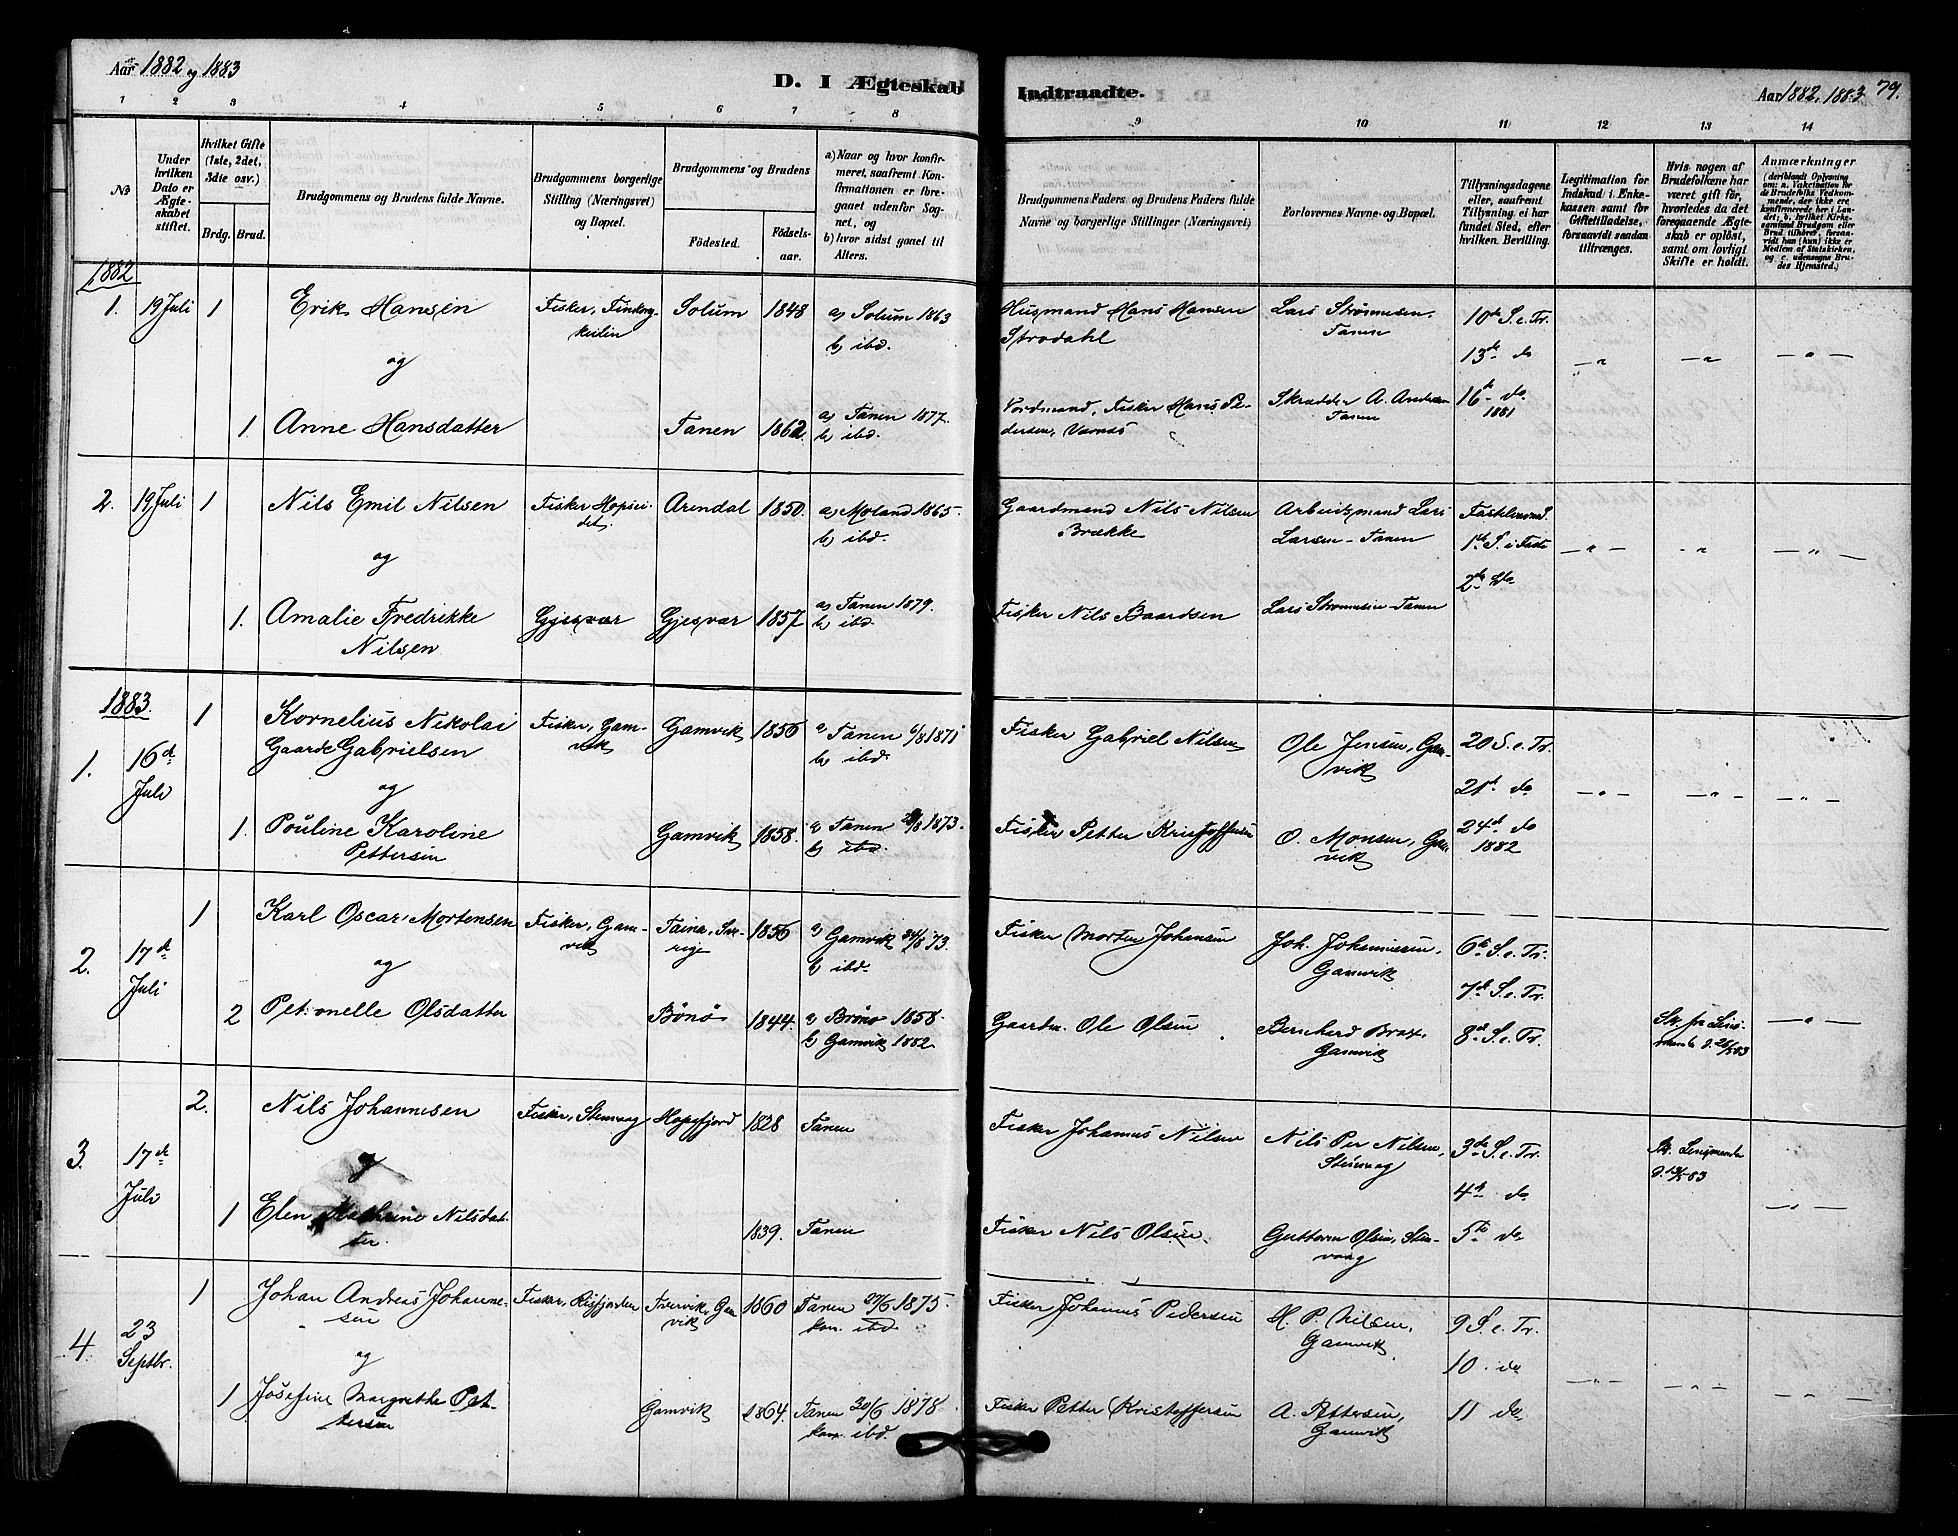 Aar 1882 og 1883
D. I Ægteskab Indtraadte.
Aar 1882, 1883 79.
1 2 3 4 5 6 7 8 9 10 11 12 13 14
No
Under hvilken Dato er Ægteskabet stiftet.
Hvilket Gifte (1ste, 2det, 3die osv.)
Brdg. Brud.
Brudgommens og Brudens fulde Navne.
Brudgommens borgerlige Stilling (Næringsvei) og Bopæl.
Brudgommens og Brudens
Födested.
Födselsaar.
a) Naar og hvor konfirmeret, saafremt Konfirmationen er foregaaet udenfor Sognet, og
b) hvor sidst gaaet til Alters.
Brudgommens Faders og Brudens Faders fulde Navne og borgerlige Stillinger (Næringsvei)
Forlovernes Navne og Bopæl.
Tillysningsdagene eller, saafremt Tillysning ei har fundet Sted, efter hvilken Bevilling.
Legitimation for Indskud i Enkekassen samt for Giftetilladelse, forsaavidt saadan tiltrænges.
Hvis nogen af Brudefolkene har været gift för, hvorledes da det foregaaende Ægteskab er oplöst, samt om lovligt Skifte er holdt.
Anmærkninger
(deriblandt Oplysning om: a. Vakcination for de Brudefolks Vedkommende, der ikke ere konfirmerede her i Landet; b. hvilket Kirkesamfund Brudgom eller Brud tilhörer, forsaavidt han (hun) ikke er Medlem af Statskirken, og c. udensogns Brudes Hjemsted.)
1882
1. 19 Juli 1 Erik Hansen Fisker, Finkongkeilen Solum 1848 a) Solum 1863 b) ibd. Husmand Hans Hansen Strodahl Lars Strømmesen, Tanen 10de S. e. Tr. 13de do
og
1 Anne Hansdatter Tanen 1862. a) Tanen 1877. b) ibd. Nordmand, Fisker Hans Pedersen, Værnæs Skrædder A. Andersen Tanen 16de do. 1881
2. 19 Juli 1 Nils Emil Nilsen Fisker Hopseidet, Arendal 1850. a) Moland 1865. b) ibd. Gaardmand Nils Nilsen Brække Arbeidsmand Lars Larsen - Tanen 1ste S. i Faste
og
1. Amalie Fredrikke Nilsen Gjesvær Gjesvær 1857 a) Tanen 1879. b) ibd. Fisker Nils Baardsen Lars Strømmesen - Tanen 2de do
1883.
1. 16de Juli 1 Kornelius Nikolai Gaarde Gabrielsen Fisker, Gamvik Gamvik 1856 a) Tanen 6/8 1871 b) ibd. Fisker Gabriel Nilsen Ole Jensen, Gamvik 20 S. e. Tr. 21de do
og
1. Pouline Karoline Pettersen Gamvik 1858. a) Tanen 1873. b) ibd. Fisker Petter Kristoffersen O. Monsen, Gamvik 24de do 1882
2. 17de Juli 1 Karl Oscar Mortensen Fisker, Gamvik Sverig 1856 a) Gamvik 24/8 73. b) ibd. Fisker Morten Johansen Joh. Johannesen, Gamvik 6te S. e. Tr. 7de S. e. Tr.
og
2 Petronelle Olsdatter Bønø 1844. a) Brønø 1858. b) Gamvik 1882. Gaardm. Ole Olsen Bernhard Brax, Gamvik 8de S. e. Tr.
3. 17de Juli 2. Nils Johannesen Fisker, Stenvaag Hopsfjord 1828 Tanen Fisker Johannes Nilsen Nils Per Nilsen, Stenvaag 3de S. e. Tr. 4de do
og
1 Elen Kathrine Nilsdatter. 1839. Tanen Fisker Nils Olsen. Guttorm Olsen, Stenvaag 5te do
4. 23 Septbr. 1 Johan Andreas Johannesen Fisker, Risfjorden Tverrvik, Gamvik 1860 Tanen 27/6 1875. kom. ibd. Fisker Johannes Pedersen H. P. Nilsen, Gamvik 9 S. e. Tr. 10. do
og
1 Josefine Margrethe Pettersen Gamvik 1864. Tanen 30/6 1878. kom. ibd. Fisker Petter Kristoffersen A. Pettersen, Gamvik 11 do